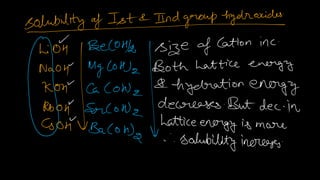 solubility of Ist & IInd group hydroxides
LiOH✓
NaOH✓
KOH✓
RbOH✓
CsOH✓
Be(OH)2
Mg(OH)2
Ca(OH)2
Sr(OH)2
Ba(OH)2
size of Cation inc
Both Lattice energy
& hydration energy
decreases But dec. in
Lattice energy is more
∴ solubility increses